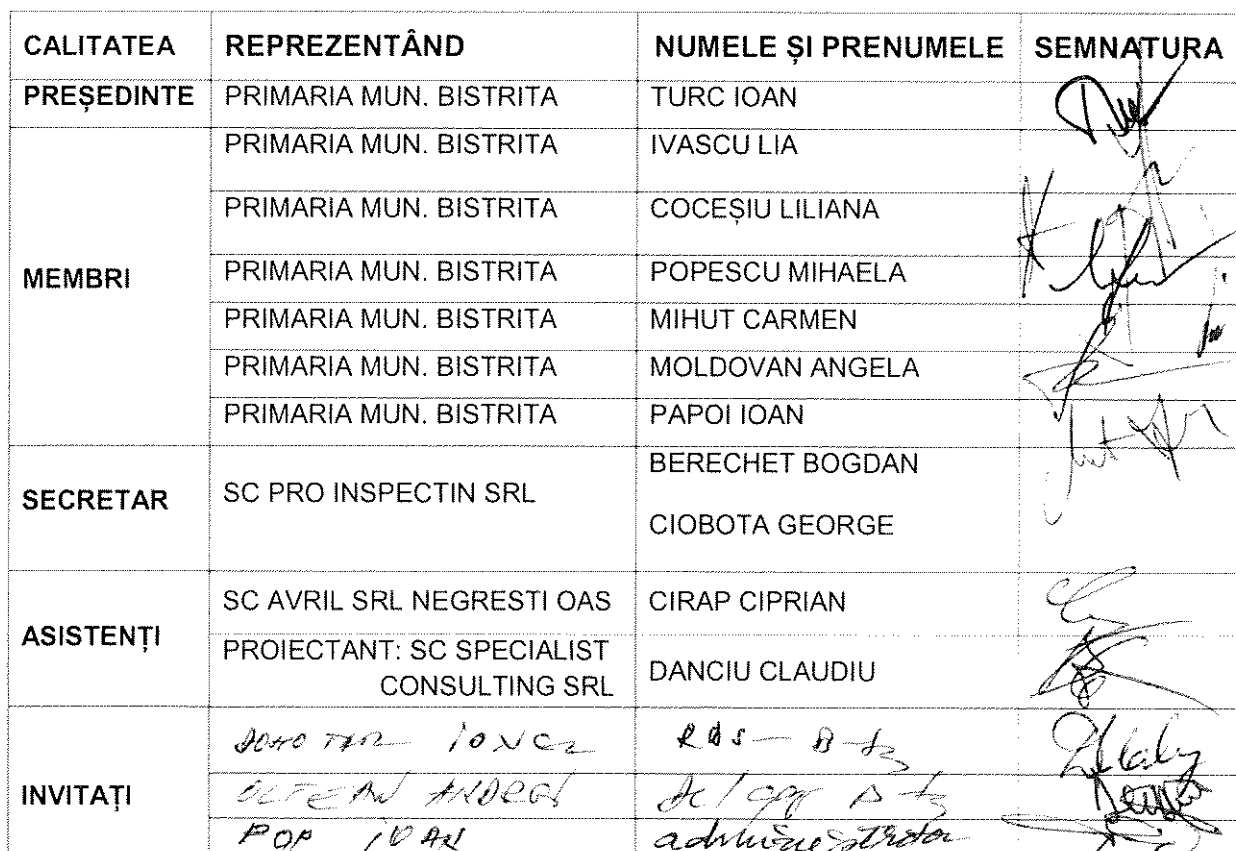 CALITATEA REPREZENTÂND NUMELE ȘI PRENUMELE SEMNATURA
PREȘEDINTE PRIMARIA MUN. BISTRITA TURC IOAN
PRIMARIA MUN. BISTRITA IVASCU LIA
PRIMARIA MUN. BISTRITA COCEȘIU LILIANA
MEMBRI PRIMARIA MUN. BISTRITA POPESCU MIHAELA
PRIMARIA MUN. BISTRITA MIHUT CARMEN
PRIMARIA MUN. BISTRITA MOLDOVAN ANGELA
PRIMARIA MUN. BISTRITA PAPOI IOAN
BERECHET BOGDAN
SECRETAR SC PRO INSPECTIN SRL
CIOBOTA GEORGE
SC AVRIL SRL NEGRESTI OAS CIRAP CIPRIAN
ASISTENȚI PROIECTANT: SC SPECIALIST
CONSULTING SRL DANCIU CLAUDIU
INVITAȚI
OLTEAN ANDREI
POP IOAN administrator